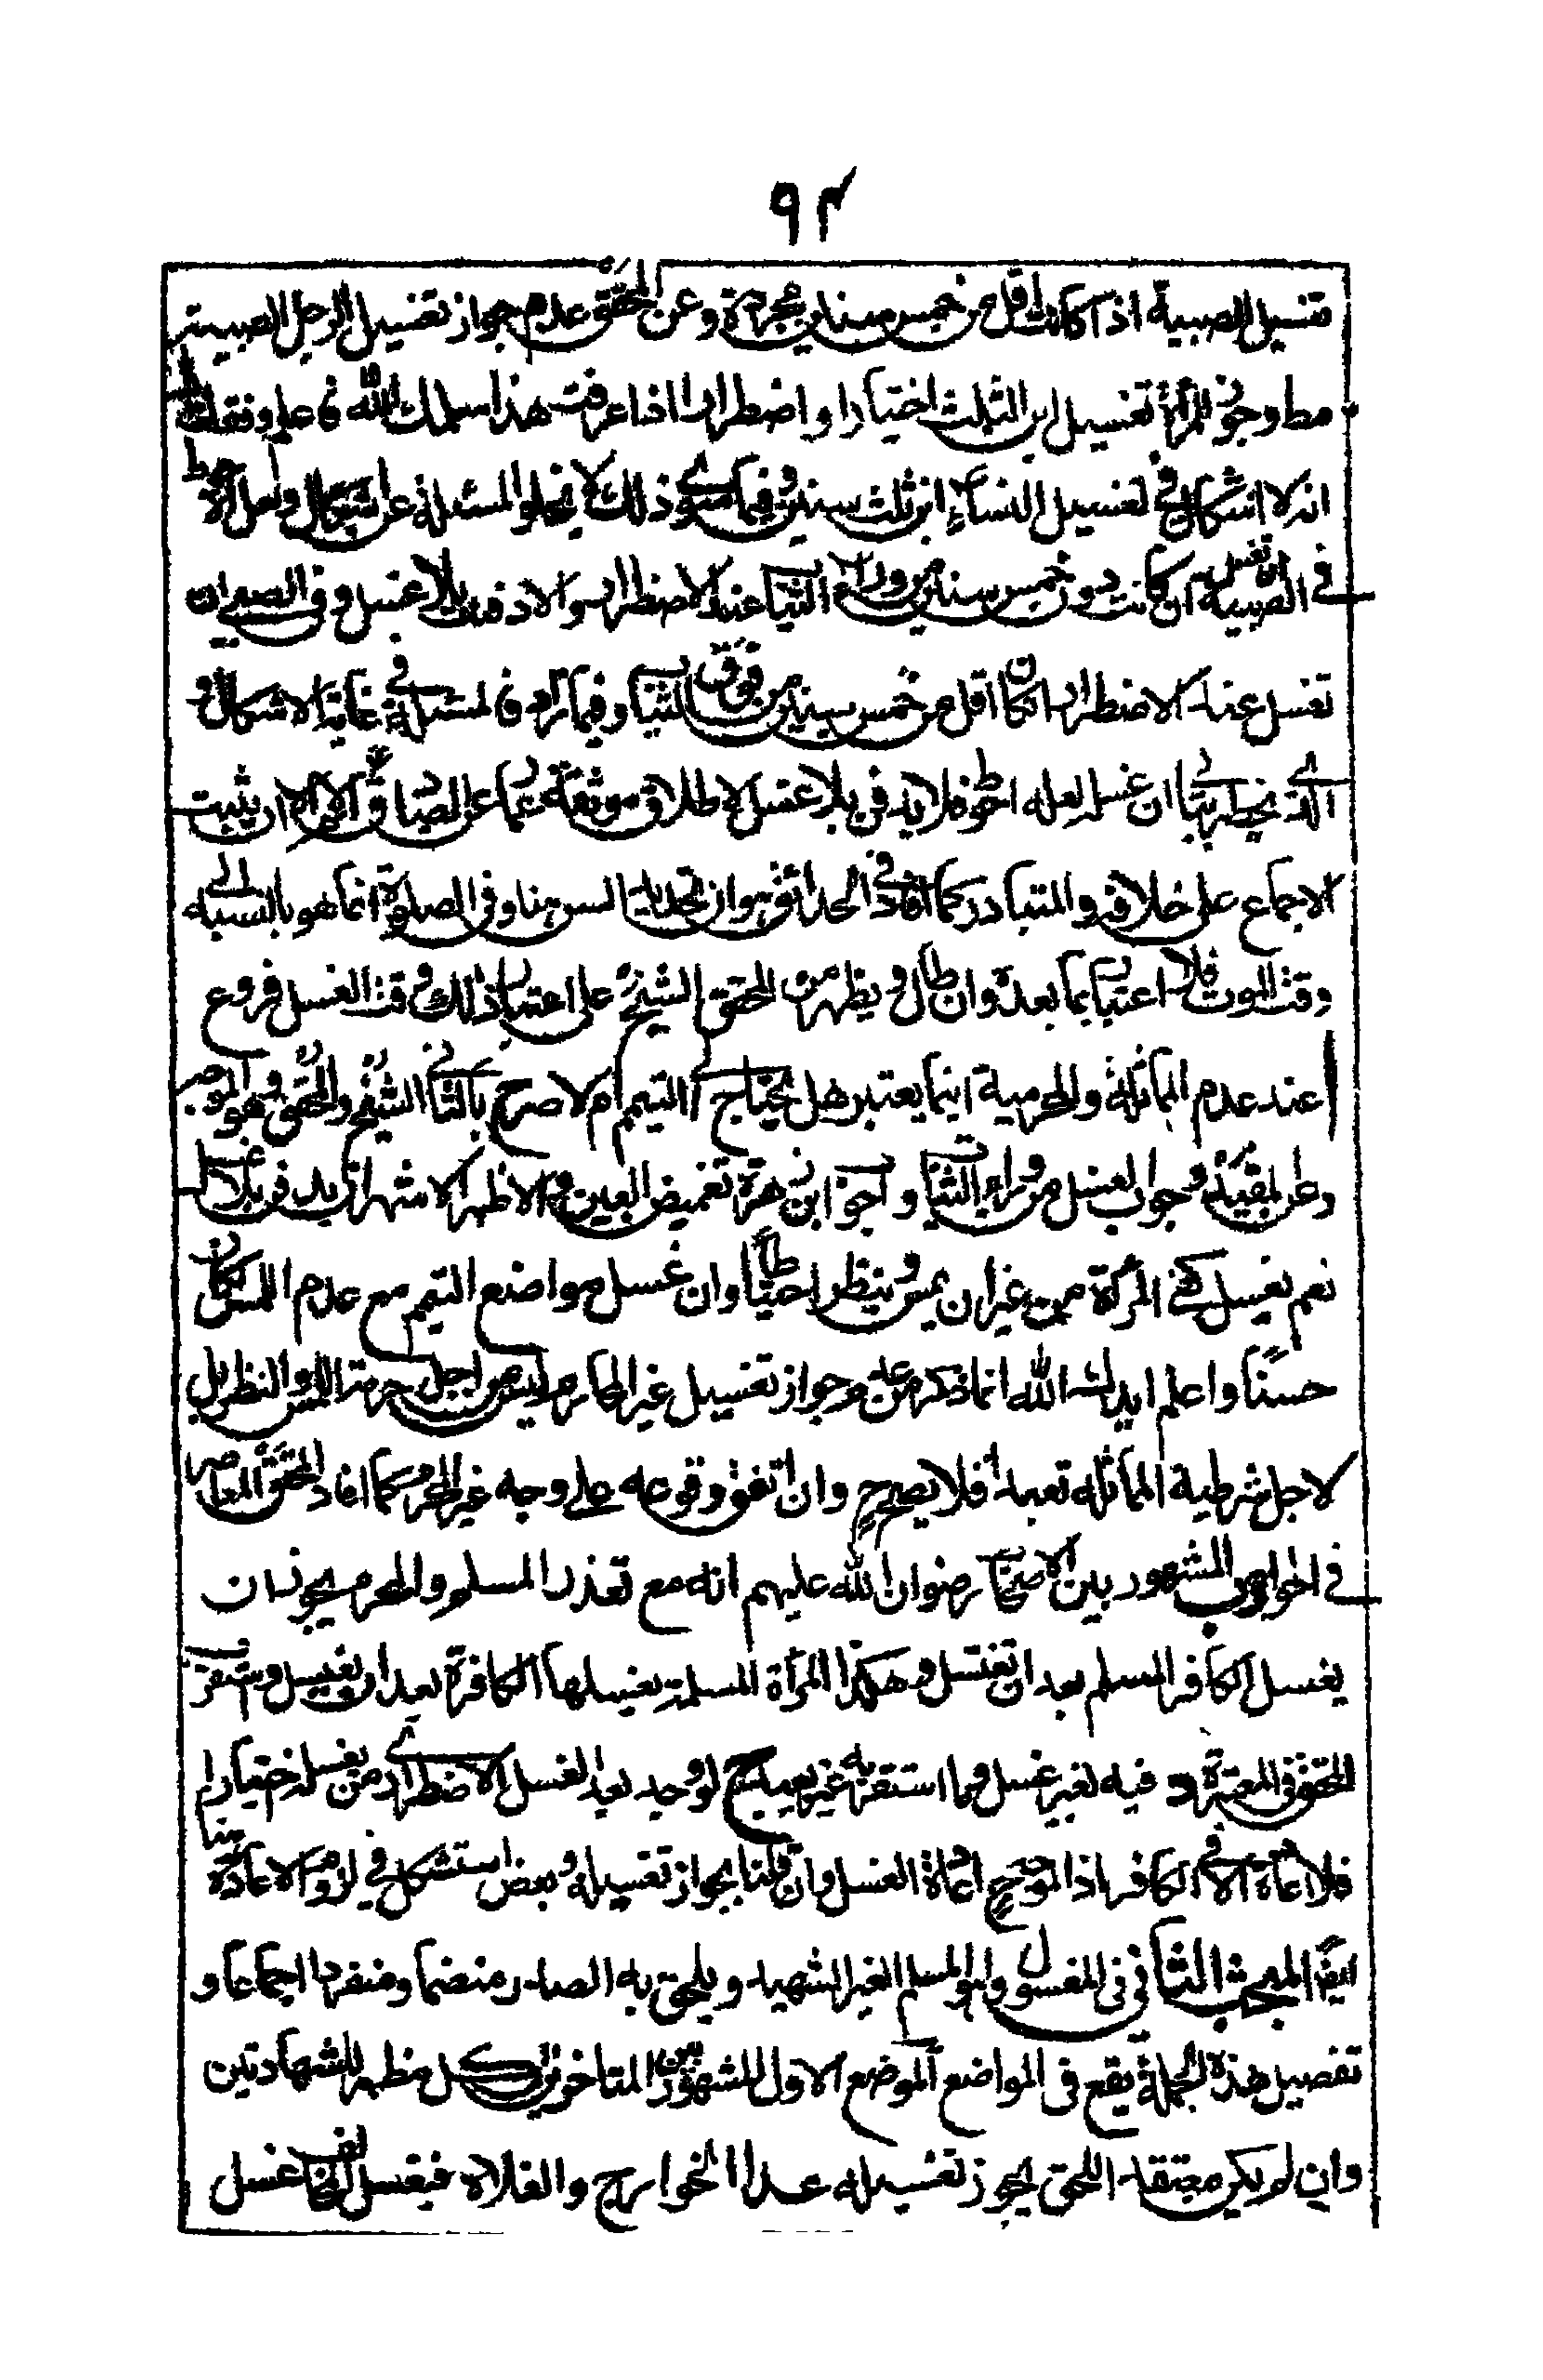 ٩٣
تغسيل الصبية اذا كانت اقل من خمس سنين مجردة وعن المحقق عدم جواز تغسيل الرجل الصبية
مط وجوز للمرأة تغسيل ابن الثلث اختيارا و اضطرارا اذا عرفت هذا سلمك الله
انه لا اشكال في تغسيل النساء ابن ثلث سنين وفيما سوى ذلك لا يخلو المسئلة عن اشكال ولعل الاحوط
في الصبية ان تغسل ان كانت دون خمس سنين من وراء الثياب عند الاضطرار والا دفنت بلا غسل وفي الصبي ان
تغسل عند الاضطرار ان كان اقل من خمس سنين من فوق الثياب وفيما رام فالمسئلة في غاية الاشكال و
الذي يخطر ببالنا ان غسله لعله احوط فلا يدفن بلا غسل لاطلاق موثقة عمار عن الصادق الا ان يثبت
الاجماع على خلافه والمتبادر كما افاد في الحدائق هو ان تحديد السن هنا وفي الصلوة انما هو بالنسبة الى
وقت الموت فلا اعتبار بما بعده وان طال ويظهر من المحقق الشيخ على اعتبار ذلك وقت الغسل فروع
عند عدم المماثلة والمحرمية اينما يعتبر هل يحتاج الى التيمم ام لا صرح بالثاني الشيخ والمحقق وهو
وعن المفيد وجوب الغسل من وراء الثياب و اوجب ابن زهرة تغميض العينين والاظهر الاشهر ان يدفن بلا غسل
نعم تغسيل كفي المرأة من غير ان يمس وينظر احتياطا وان غسل مواضع التيمم مع عدم المس كان
حسنا واعلم ايدك الله انما ذكر من عدم جواز تغسيل غير المحارم ليس من اجل حرمة اللمس والنظر بل
لاجل شرطية المماثلة تعبدا فلا يصح وان اتفق وقوعه على وجه غير المحرم كما افاد المحقق المعاصر
في الجواهر المشهور بين الاصحاب رضوان الله عليهم انه مع تعذر المسلم والمحرم يجوز ان
يغسل الكافر المسلم بعد ان تغتسل وهكذا المرأة المسلمة يغسلها الكافرة بعد ان تغتسل و
المحقق في المعتبر دفنه بغير غسل وما استقر به غير بعيد لو وجد بعد الغسل الاضطراري من يغسله اختيارا
فلا اعادة الا في الكافر اذا اعادة الغسل وان قلنا بجواز تغسيله وبعض استشكل في لزوم الاعادة هنا
ايضا المبحث الثاني في المغسول وهو المسلم الغير الشهيد و يلحق به الصدر منضما ومنفردا اجماعا و
تفصيل هذه الجملة يقع في المواضع الموضع الاول المشهور بين المتاخرين كل مظهر للشهادتين
وان لم يكن معتقد الحق يجوز تغسيله عدا الخوارج والغلاة فيغسل المخالف غسل